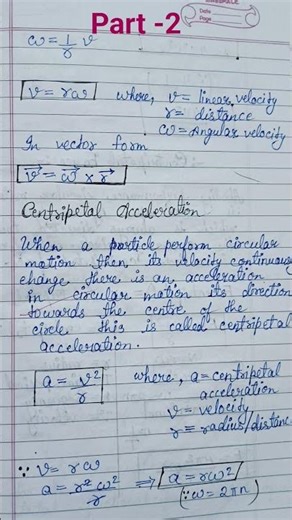 Part -2
Date
Page
ω = 1/r v
v = rω where, v = linear velocity
r = distance
ω = Angular velocity
In vector form
v⃗ = ω⃗ × r⃗
Centripetal Acceleration
When a particle perform circular
motion then its velocity continuously
change there is an acceleration
in circular motion its direction
towards the centre of the
circle this is called centripetal
acceleration.
a = v²/r where, a = centripetal
acceleration
v = velocity
r = radius/distance
∵ v = rω
a = r²ω²/r ⇒ a = rω²
(∵ ω = 2πn)